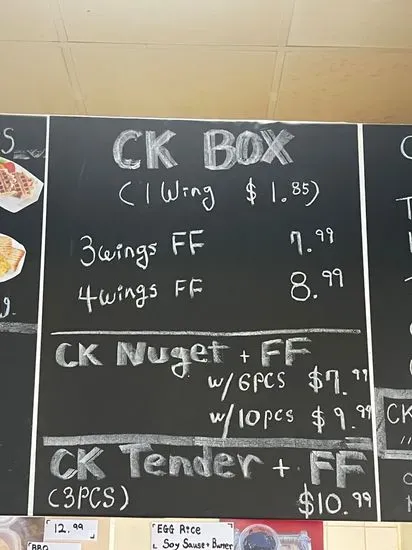 CK BOX
(1 Wing $1.85)
3wings FF 7.99
4wings FF 8.99
CK Nuget + FF
w/6PCS $7.99
w/10pcs $9.99
CK Tender + FF
(3PCS) $10.99
CK
12.99
BBQ
EGG Rice
Soy Sause + Butter